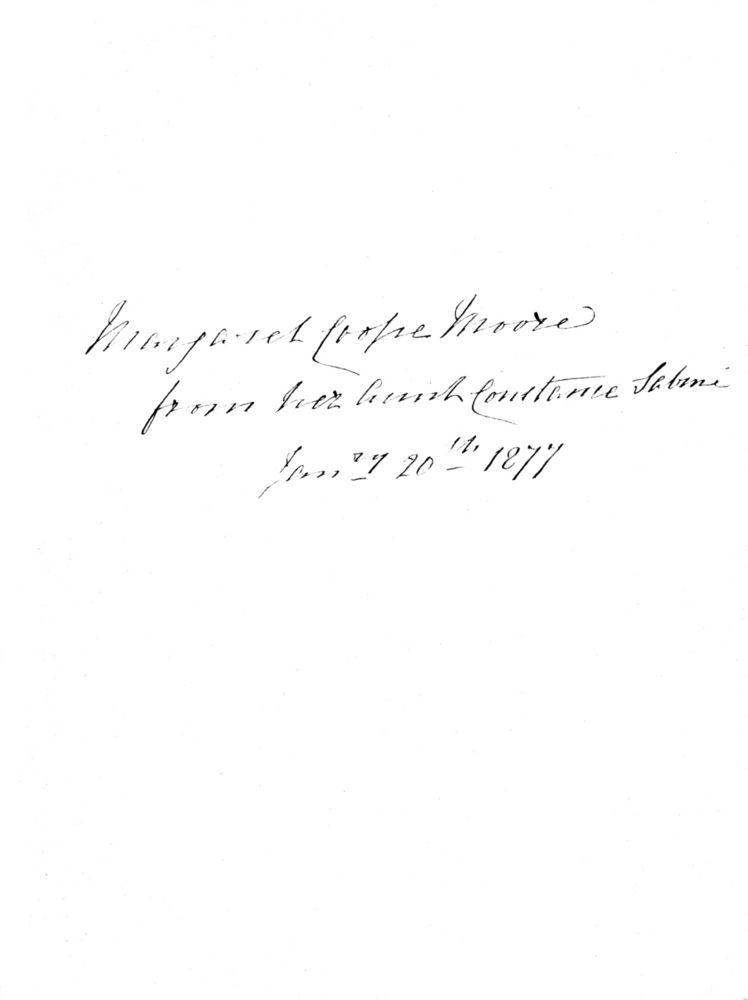 Margaret Coope Moore
from her Aunt Constance Sabine
Janry 20th 1877